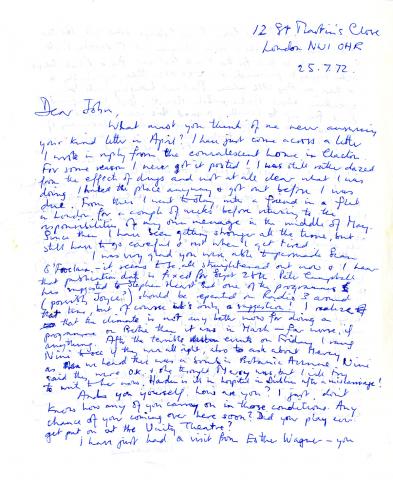 12 St Martin's Close
London NW1 0HR
25.7.72.
Dear John,
What must you think of me never answering
your kind letter in April? I have just come across a letter
I wrote in reply from the convalescent home in Clacton.
For some reason I never got it posted! I was still rather dazed
from the effect of drugs and not at all clear what I was
doing. I hated the place anyway & got out before I was
due. From there I went to stay with a friend in a flat
in London, for a couple of weeks before returning to the
responsibilities of my own menage in the middle of May.
Since then I have been getting stronger all the time, but
still have to go careful & out when I get tired.
I was very glad you were able to persuade Sean
O'Faolain - it seems to be all straightened out now & I hear
that publication date is fixed for Sept 28th. Pete Campbell
has suggested to Stephen Hearst that one of the programmes
(possibly Joyce) should be repeated on Radio 3 around
that time, but of course it's only a suggestion! I realize
that the climate is not any better now for doing a
programme on Belfast than it was in March - far worse, if
anything. After the terrible events on Friday, I rang
Nini to see if they were all right, also to ask about Mercy,
as we heard there was a bomb in Botanic Avenue. Nini
said they were OK, & she thought Mercy was, but I will try
to write to her now. is in hospital in Dublin after a miscarriage!
And you yourself, how are you? I just don't
know how any of you carry on in those conditions. Any
chance of your coming over here soon? Did your play ever
get put on at the Unity Theatre?
I have just had a visit from Esther Wagner - you